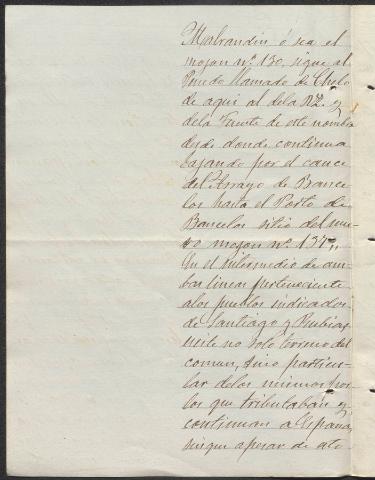 Malrandin ó sea el
mojon nº. 130, sigue al
Penedo llamado de Chelo
de aqui al de la
de la Fuente de este nombre
desde donde continua
bajando por el cauce
del Arroyo de Barce
los hasta el Porto de
Barcelos sitio del nue
vo mojon nº. 137,,
En el intermedio de am
bas lineas perteneciente
alos pueblos indicados
de Santiago y Rubias
esite no solo terreno del
comun, sino particu
lar de los mismos por
los que tributaban y
continuan a España,
sin que apesar de ote